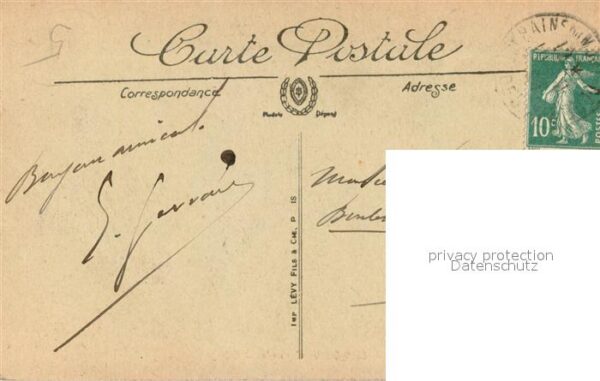 5
Carte Postale
Correspondance
Adresse
Modèle Déposé
REPUBLIQUE FRANÇAISE
10 c
Bonjour amical.
IMP. LÉVY FILS & CIE, P IS
privacy protection
Datenschutz